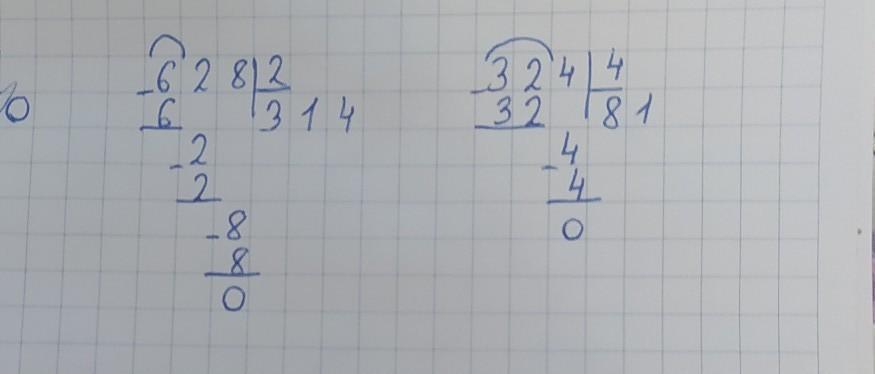 628|2
-6 314
-2
2
-8
8
0
324|4
-32 81
-4
4
0